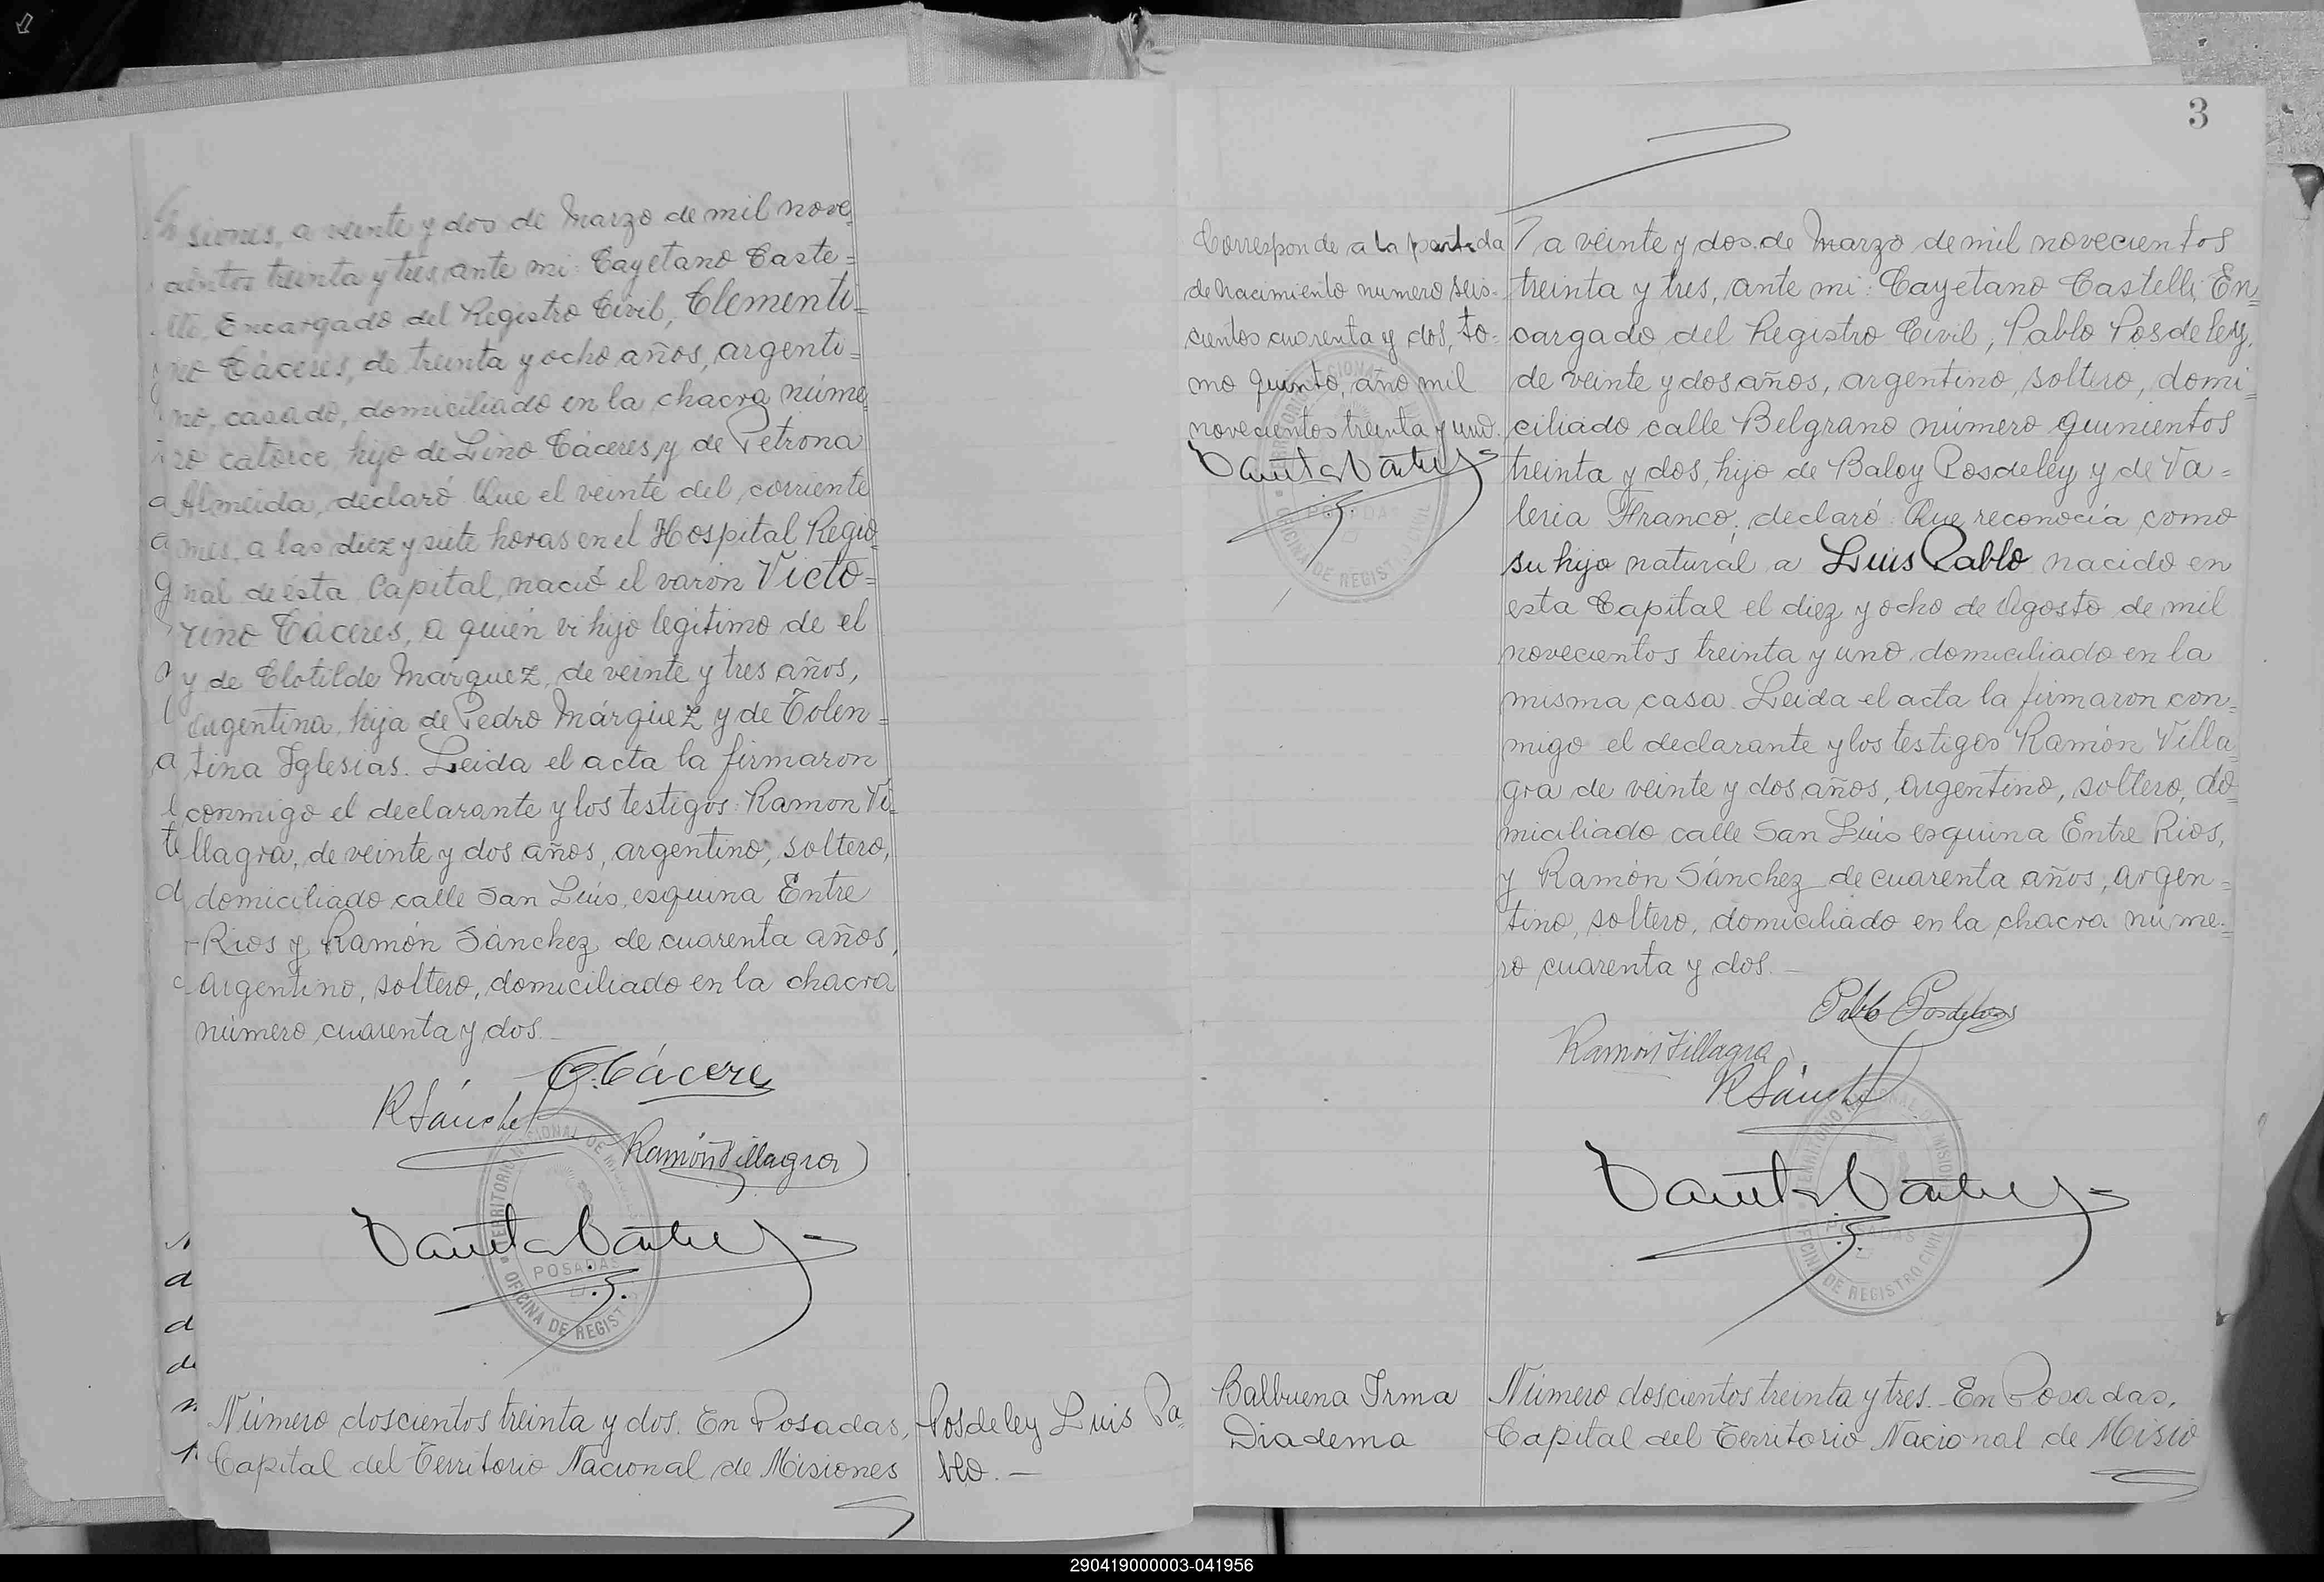 siones, a veinte y dos de Marzo de mil nove
cientos treinta y tres, ante mi: Cayetano Caste=
lli, Encargado del Registro Civil, Clementi=
no Cáceres, de treinta y ocho años, argenti=
no, casado, domiciliado en la chacra núme
ro catorce, hijo de Lino Cáceres, y de Petrona
Almeida, declaró: Que el veinte del corriente
mes, a las diez y siete horas en el Hospital Regio
nal de ésta Capital, nació el varón Victo=
rino Cáceres, a quién vi hijo legitimo de el
y de Clotilde Márquez, de veinte y tres años,
argentina, hija de Pedro Márquez y de Tolen=
tina Iglesias. Leida el acta la firmaron
conmigo el declarante y los testigos: Ramon Vi=
llagra, de veinte y dos años, argentino, soltero,
domiciliado calle San Luis, esquina Entre
Rios y Ramón Sánchez, de cuarenta años,
argentino, soltero, domiciliado en la chacra
número cuarenta y dos.
C. Cáceres
R Sánchez
Ramón Villagra
TERRITORIO NACIONAL DE MISIONES
POSADAS
OFICINA DE REGISTRO CIVIL
Número doscientos treinta y dos. En Posadas,
Capital del Territorio Nacional de Misiones
Posdeley Luis Pa=
blo.—
3
Corresponde a la partida
de nacimiento numero seis-
cientos cuarenta y dos, to-
mo quinto, año mil
novecientos treinta y uno.
POSADAS
OFICINA DE REGISTRO CIVIL
a veinte y dos de Marzo de mil novecientos
treinta y tres, ante mi: Cayetano Castelli, En=
cargado del Registro Civil, Pablo Posdeley,
de veinte y dos años, argentino, soltero, domi=
ciliado calle Belgrano número quinientos
treinta y dos, hijo de Baloy Posdeley y de Va=
leria Franco, declaró: Que reconocía como
su hijo natural a Luis Pablo nacido en
esta Capital el diez y ocho de Agosto de mil
novecientos treinta y uno, domiciliado en la
misma casa. Leida el acta la firmaron con=
migo el declarante y los testigos Ramón Villa
gra de veinte y dos años, argentino, soltero, do=
miciliado calle San Luis esquina Entre Rios,
y Ramón Sánchez de cuarenta años, argen=
tino, soltero, domiciliado en la chacra núme=
ro cuarenta y dos.—
Pablo Posdeley
Ramón Villagra
R Sánchez
TERRITORIO NACIONAL DE MISIONES
POSADAS
OFICINA DE REGISTRO CIVIL
Balbuena Irma
Diadema
Número doscientos treinta y tres.- En Posadas,
Capital del Territorio Nacional de Misio
290419000003-041956